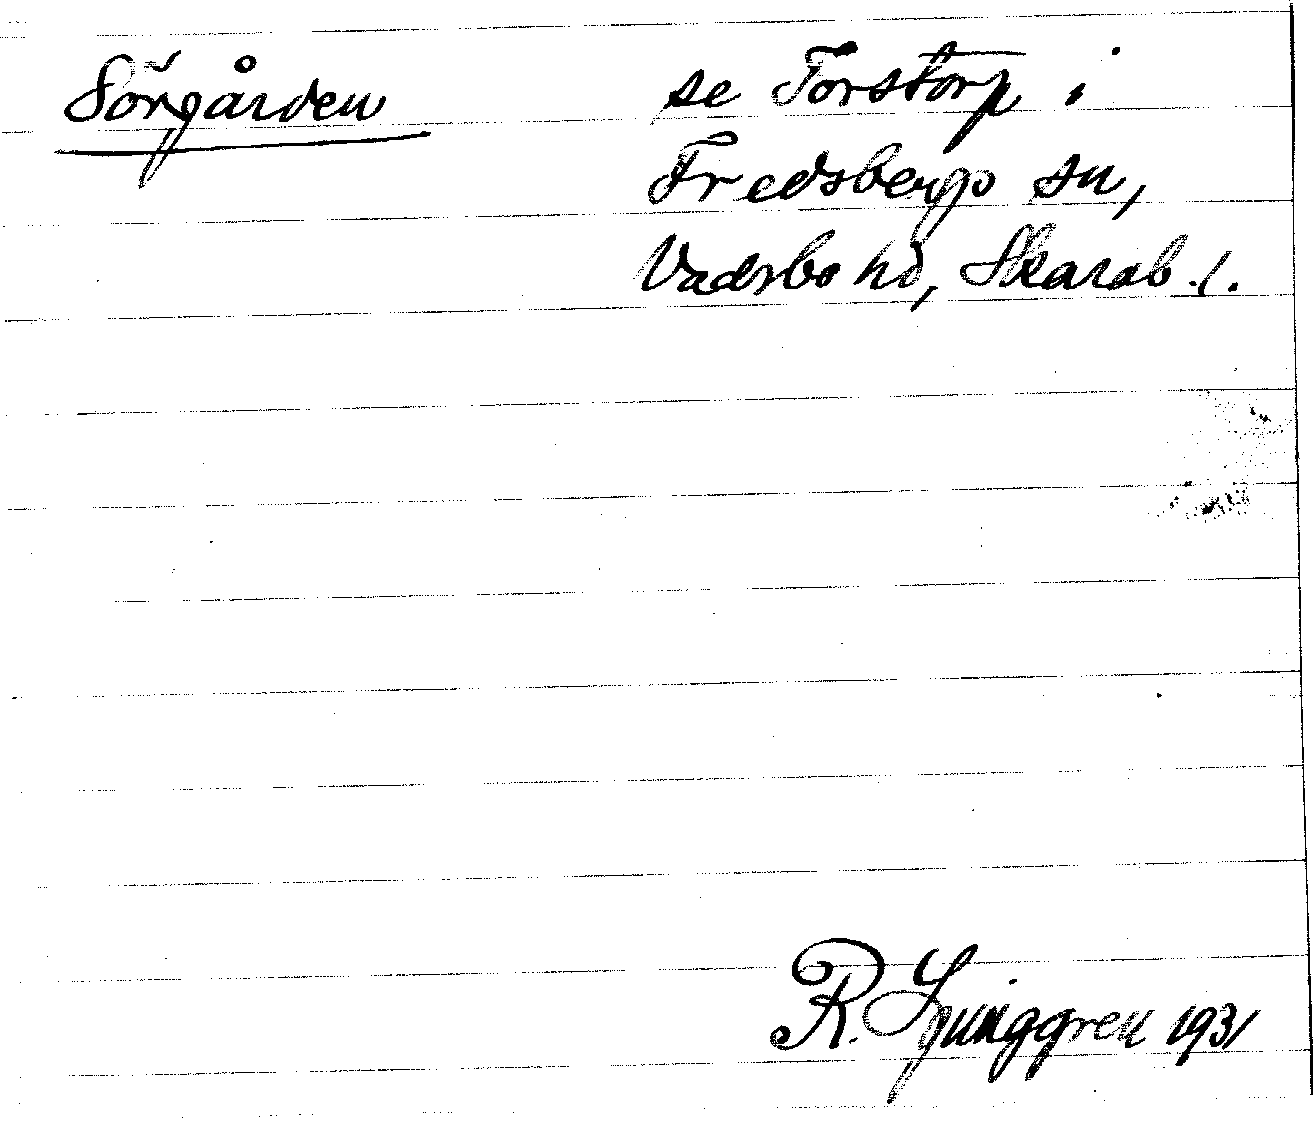 Sörgården se Torstorp i
Fredsbergs sn,
Vadsbo hd, Skarab. l.
R. Ljunggren 1931